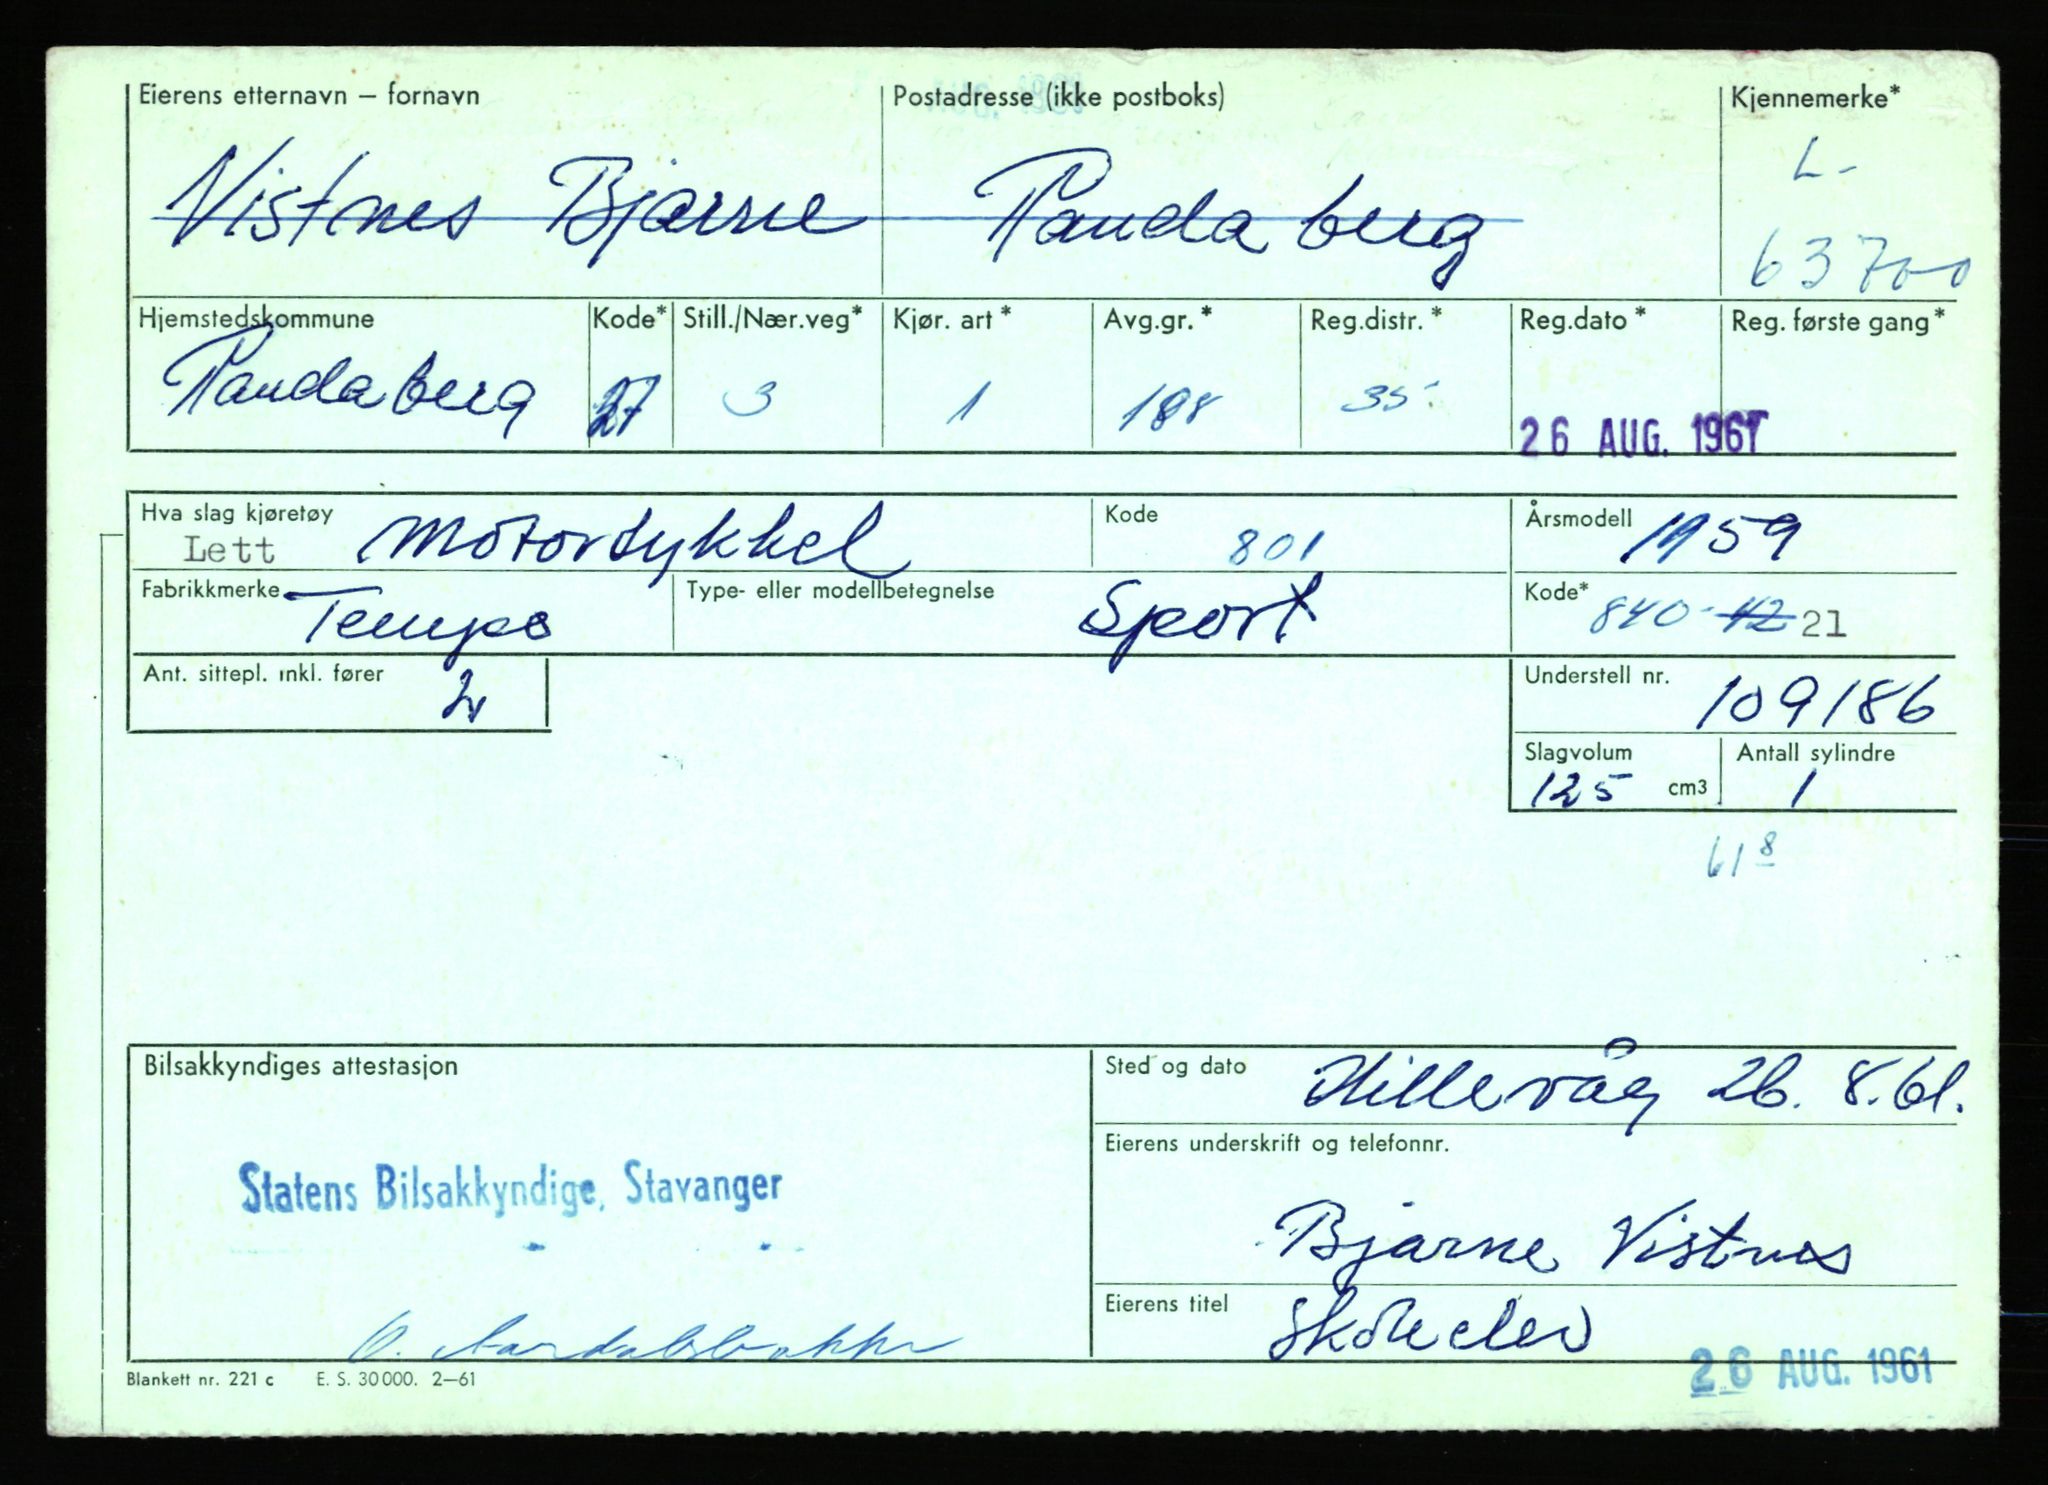 Eierens etternavn – fornavn Postadresse (ikke postboks) Kjennemerke*
Vistnes Bjarne Randaberg L-
63700
Hjemstedskommune Kode* Still./Nær.veg* Kjør. art * Avg.gr. * Reg.distr. * Reg.dato * Reg. første gang *
Randaberg 27 3 1 188 35
26 AUG. 1961
Hva slag kjøretøy Kode Årsmodell
Lett Motorsykkel 801 1959
Fabrikkmerke Type- eller modellbetegnelse Kode*
Tempo Sport 840-42 21
Ant. sittepl. inkl. fører Understell nr.
2 109186
Slagvolum Antall sylindre
125 cm3 1
61 8
Bilsakkyndiges attestasjon Sted og dato
Hillevåg 26. 8. 61.
Eierens underskrift og telefonnr.
Statens Bilsakkyndige, Stavanger
Bjarne Vistnes
Eierens titel
Skoleelev
26 AUG. 1961
Blankett nr. 221 c E. S. 30 000. 2—61